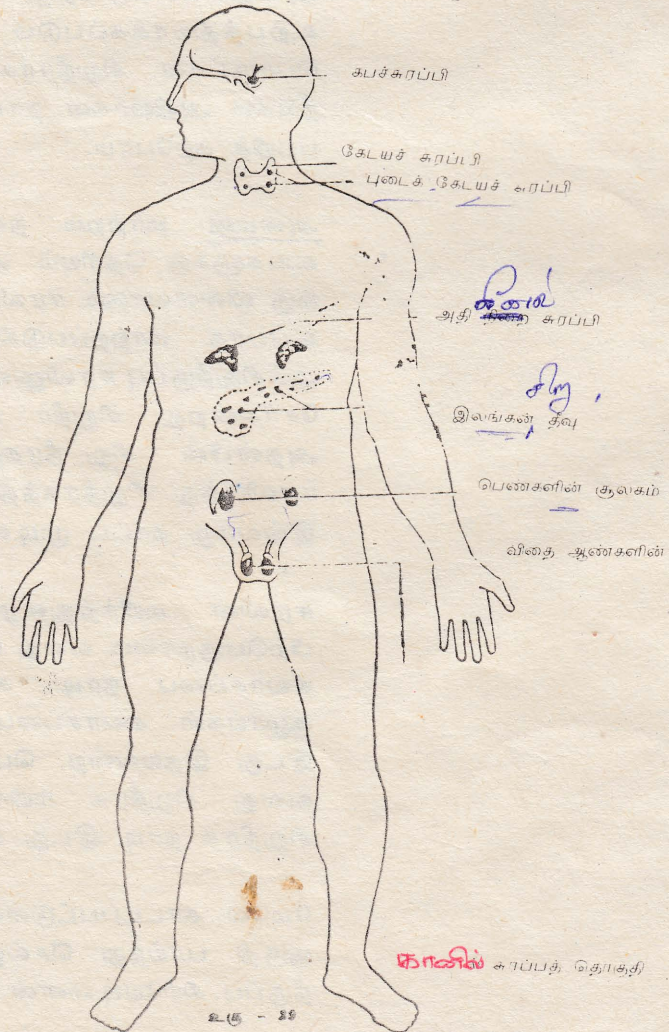 கபச்சுரப்பி
கேடயச் சுரப்பி
புடைக் கேடயச் சுரப்பி
அதி சுரப்பி
சிறு
இலங்கன் தீவு
பெண்களின் சூலகம்
விதை ஆண்களின்
கானில் சுரப்பத் தொகுதி
உரு - 29